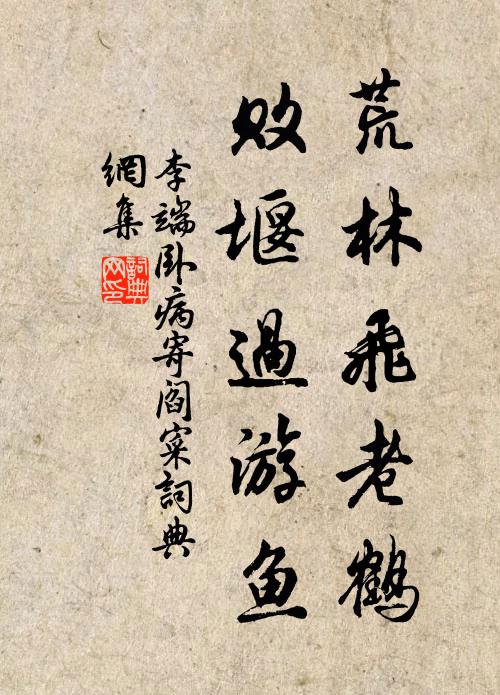 荒林飛老鶴
敗堰過游魚
李端卧病寄閻寀詞典
網集
詞典網印